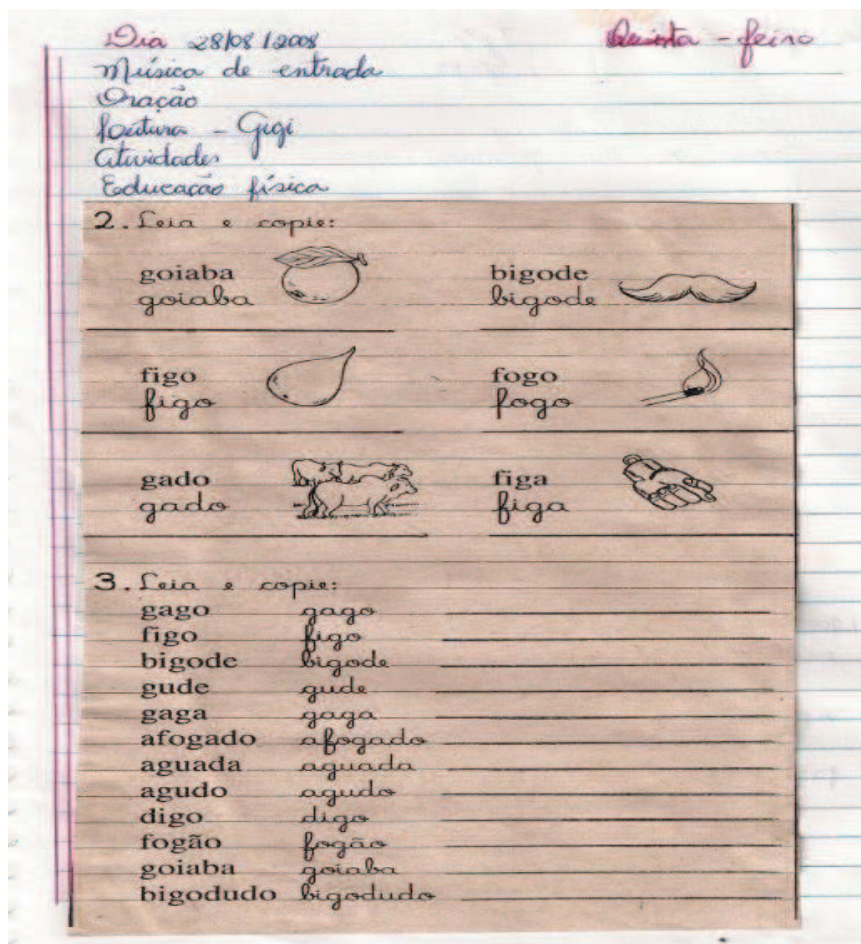 Dia 28/08/2008 Quinta - feira
Música de entrada
Oração
Leitura - Gigi
Atividades
Educação física
2. Leia e copie:
goiaba bigode
goiaba bigode
figo fogo
figo fogo
gado figa
gado figa
3. Leia e copie:
gago gago
figo figo
bigode bigode
gude gude
gaga gaga
afogado afogado
aguada aguada
agudo agudo
digo digo
fogão fogão
goiaba goiaba
bigodudo bigodudo